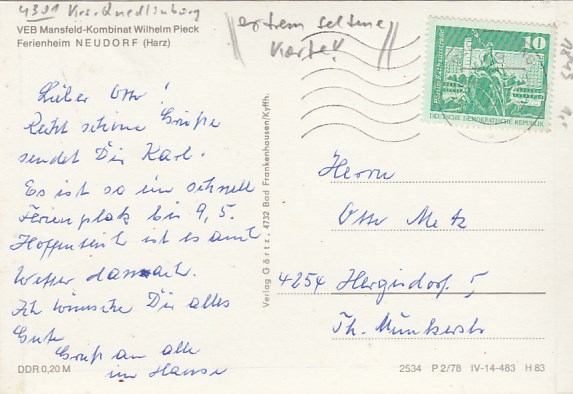 4301 Krs. Quedlinburg
VEB Mansfeld-Kombinat Wilhelm Pieck
Ferienheim NEUDORF (Harz)
extrem seltene
Karte!!
10
Berlin, Rathausstraße
DEUTSCHE DEMOKRATISCHE REPUBLIK
Lieber Otto!
Recht schöne Grüße
sendet Dir Karl.
Es ist so ein schnell
Ferienplatz bis 9,5.
Hoffentlich ist es auch
Wetter danach.
Ich wünsche Dir alles
Gute
Gruß an alle
im Hause
Verlag Görtz, 4732 Bad Frankenhausen/Kyffh.
Herrn
Otto Metz
4254 Hergisdorf 5
Th. Münkerstr
DDR 0,20 M
2534 P 2/78 IV-14-483 H 83